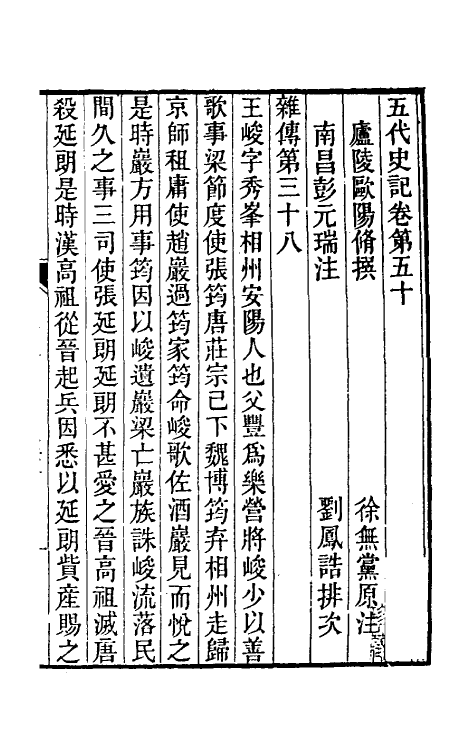 五代史記卷第五十
廬陵歐陽脩撰 徐無黨原注
南昌彭元瑞注 劉鳳誥排次
雜傳第三十八
王峻字秀峯相州安陽人也父豐爲樂營將峻少以善
歌事梁節度使張筠唐莊宗已下魏博筠弃相州走歸
京師租庸使趙巖過筠家筠命峻歌佐酒巖見而悅之
是時巖方用事筠因以峻遺巖梁亡巖族誅峻流落民
間久之事三司使張延朗延朗不甚愛之晉高祖滅唐
殺延朗是時漢高祖從晉起兵因悉以延朗貲産賜之